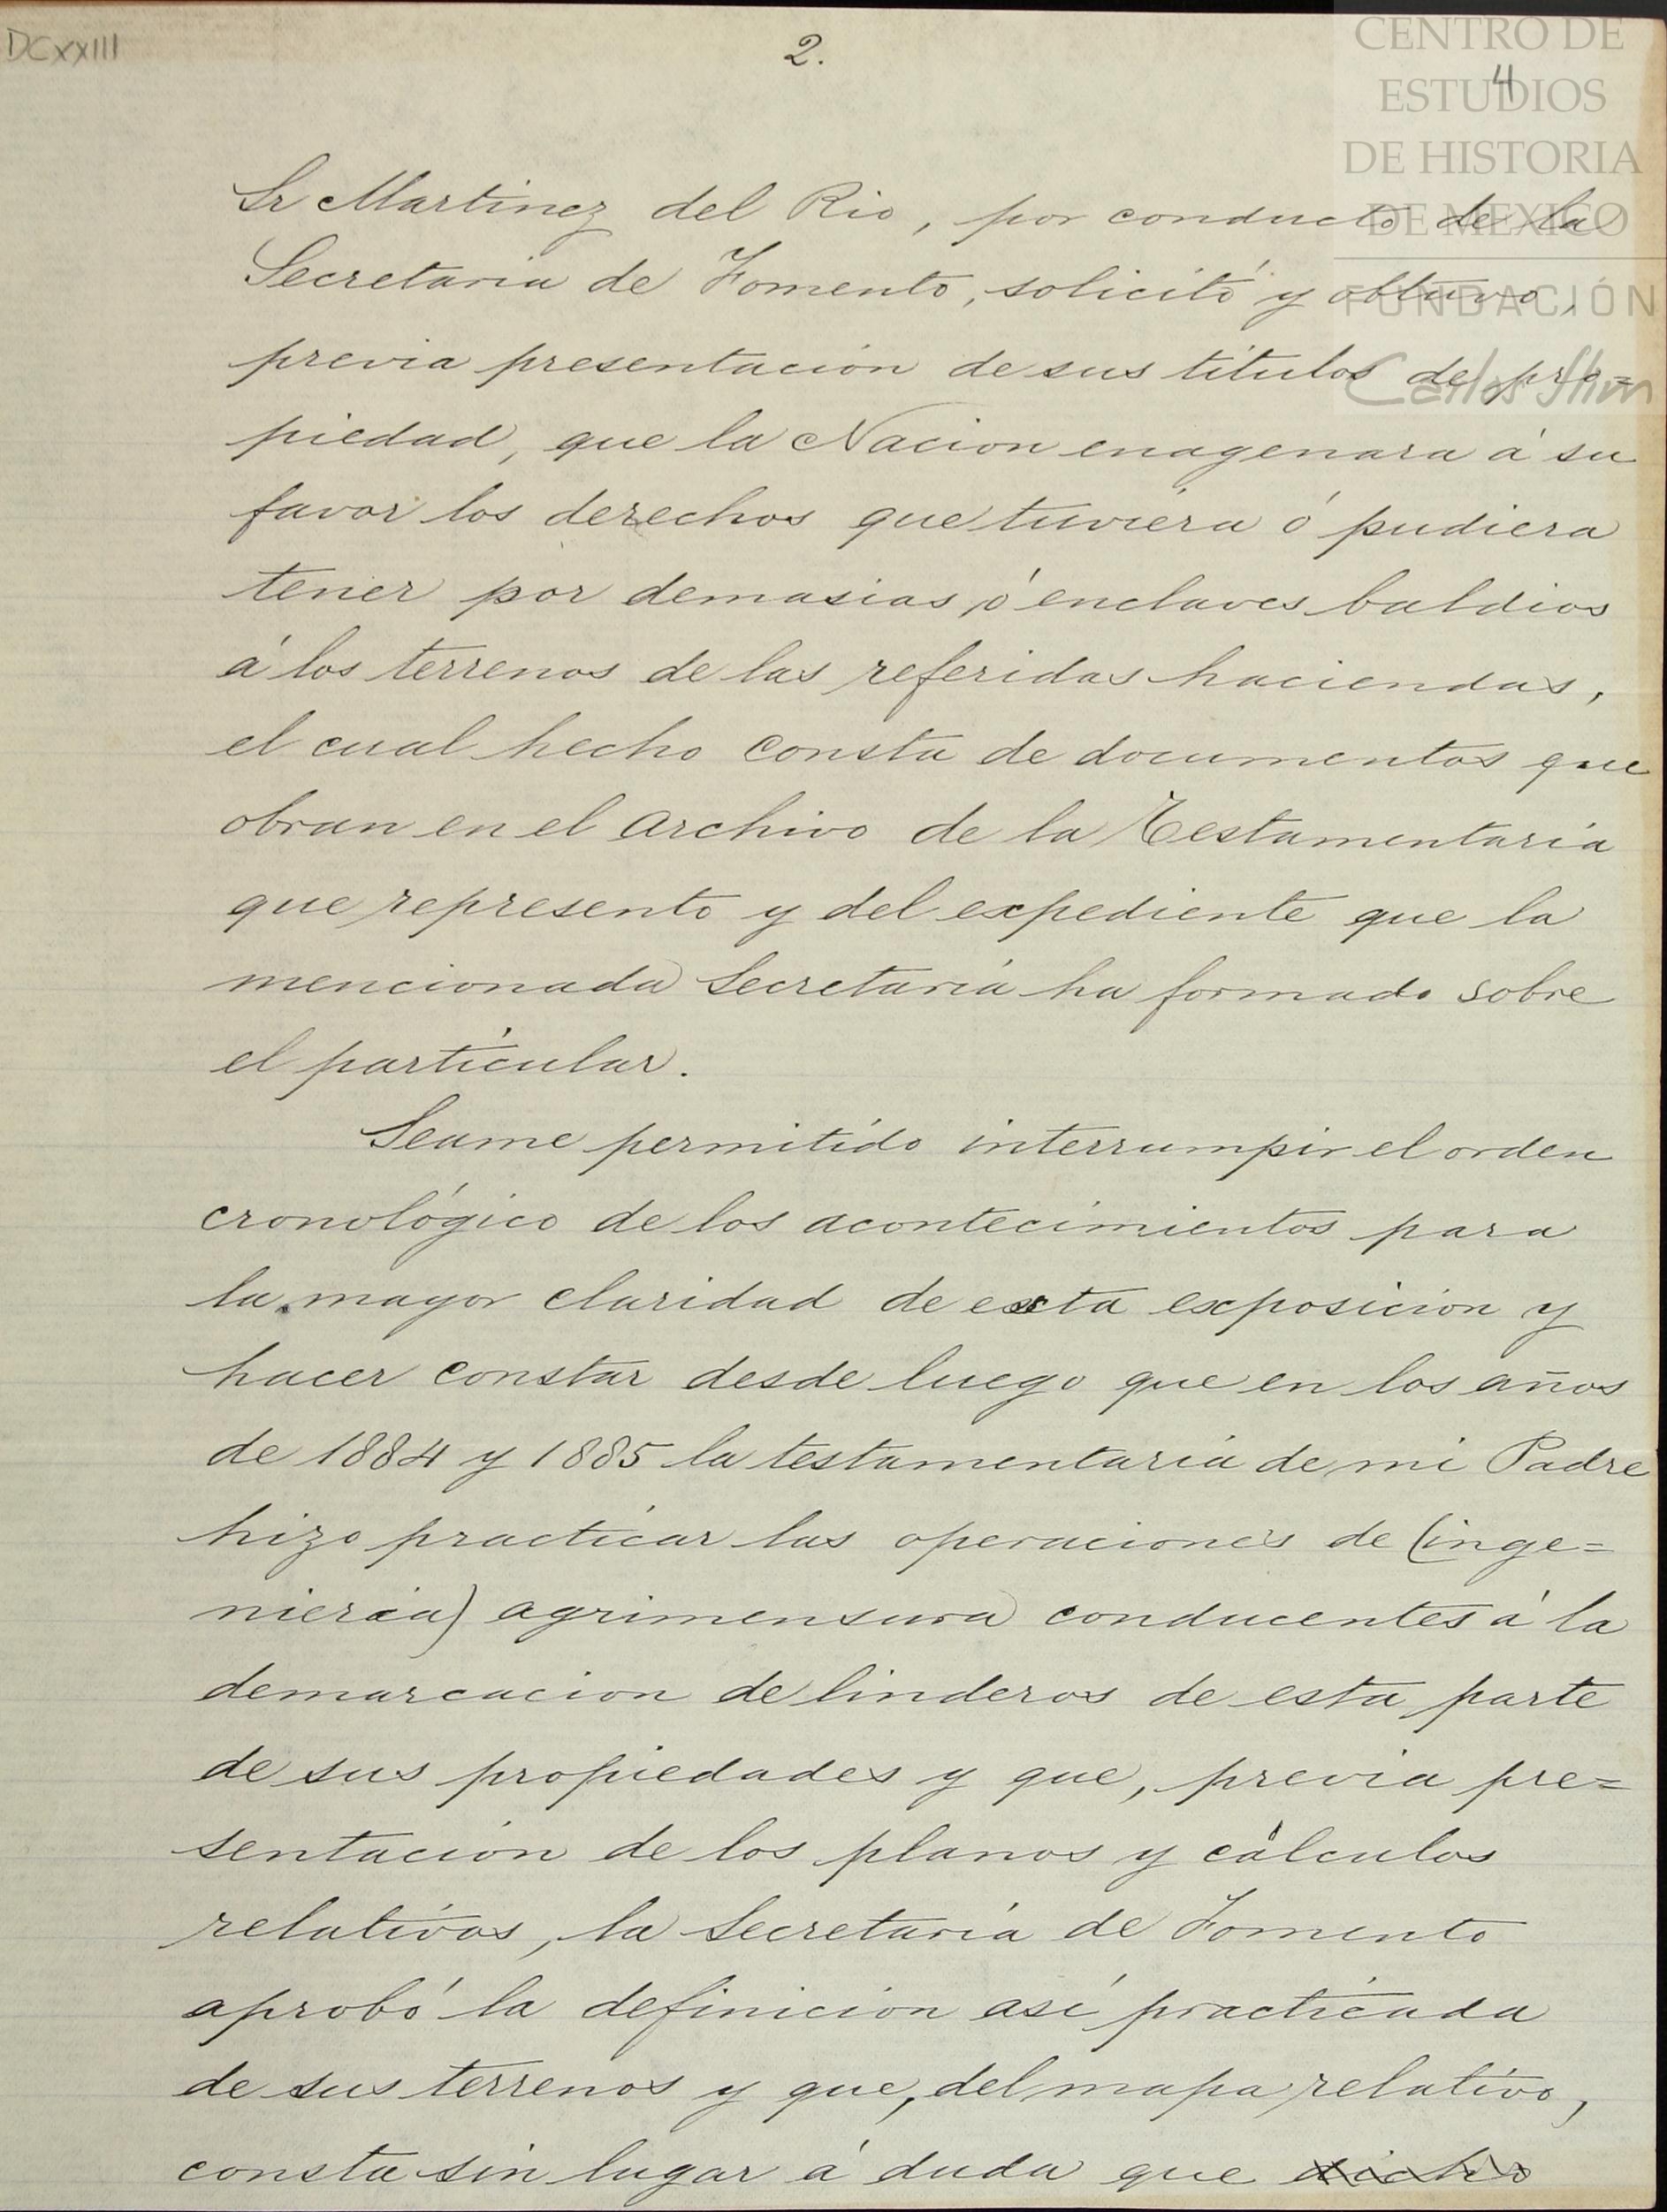 DCXXIII
2.
4
CENTRO DE
ESTUDIOS
DE HISTORIA
DE MEXICO
FUNDACIÓN
Carlos Slim
Sr Martinez del Rio, por conducto de la
Secretaria de Fomento, solicitó y obtuvo,
previa presentación de sus titulos de pro=
piedad, que la Nacion enagenara á su
favor los derechos que tuviera ó pudiera
tener por demasias ó enclaves baldios
á los terrenos de las referidas haciendas,
el cual hecho consta de documentos que
obran en el archivo de la Testamentaria
que represento y del expediente que la
mencionada Secretaría ha formado sobre
el particular.
Seame permitido interrumpir el orden
cronológico de los acontecimientos para
la mayor claridad de esta exposicion y
hacer constar desde luego que en los años
de 1884 y 1885 la testamentaria de mi Padre
hizo practicar las operaciones de (inge=
nieria) agrimensura conducentes á la
demarcacion de linderos de esta parte
de sus propiedades y que, previa pre=
sentación de los planos y cálculos
relativos, la Secretaría de Fomento
aprobó la definicion asi practicada
de sus terrenos y que, del mapa relativo,
consta sin lugar á duda que dicho